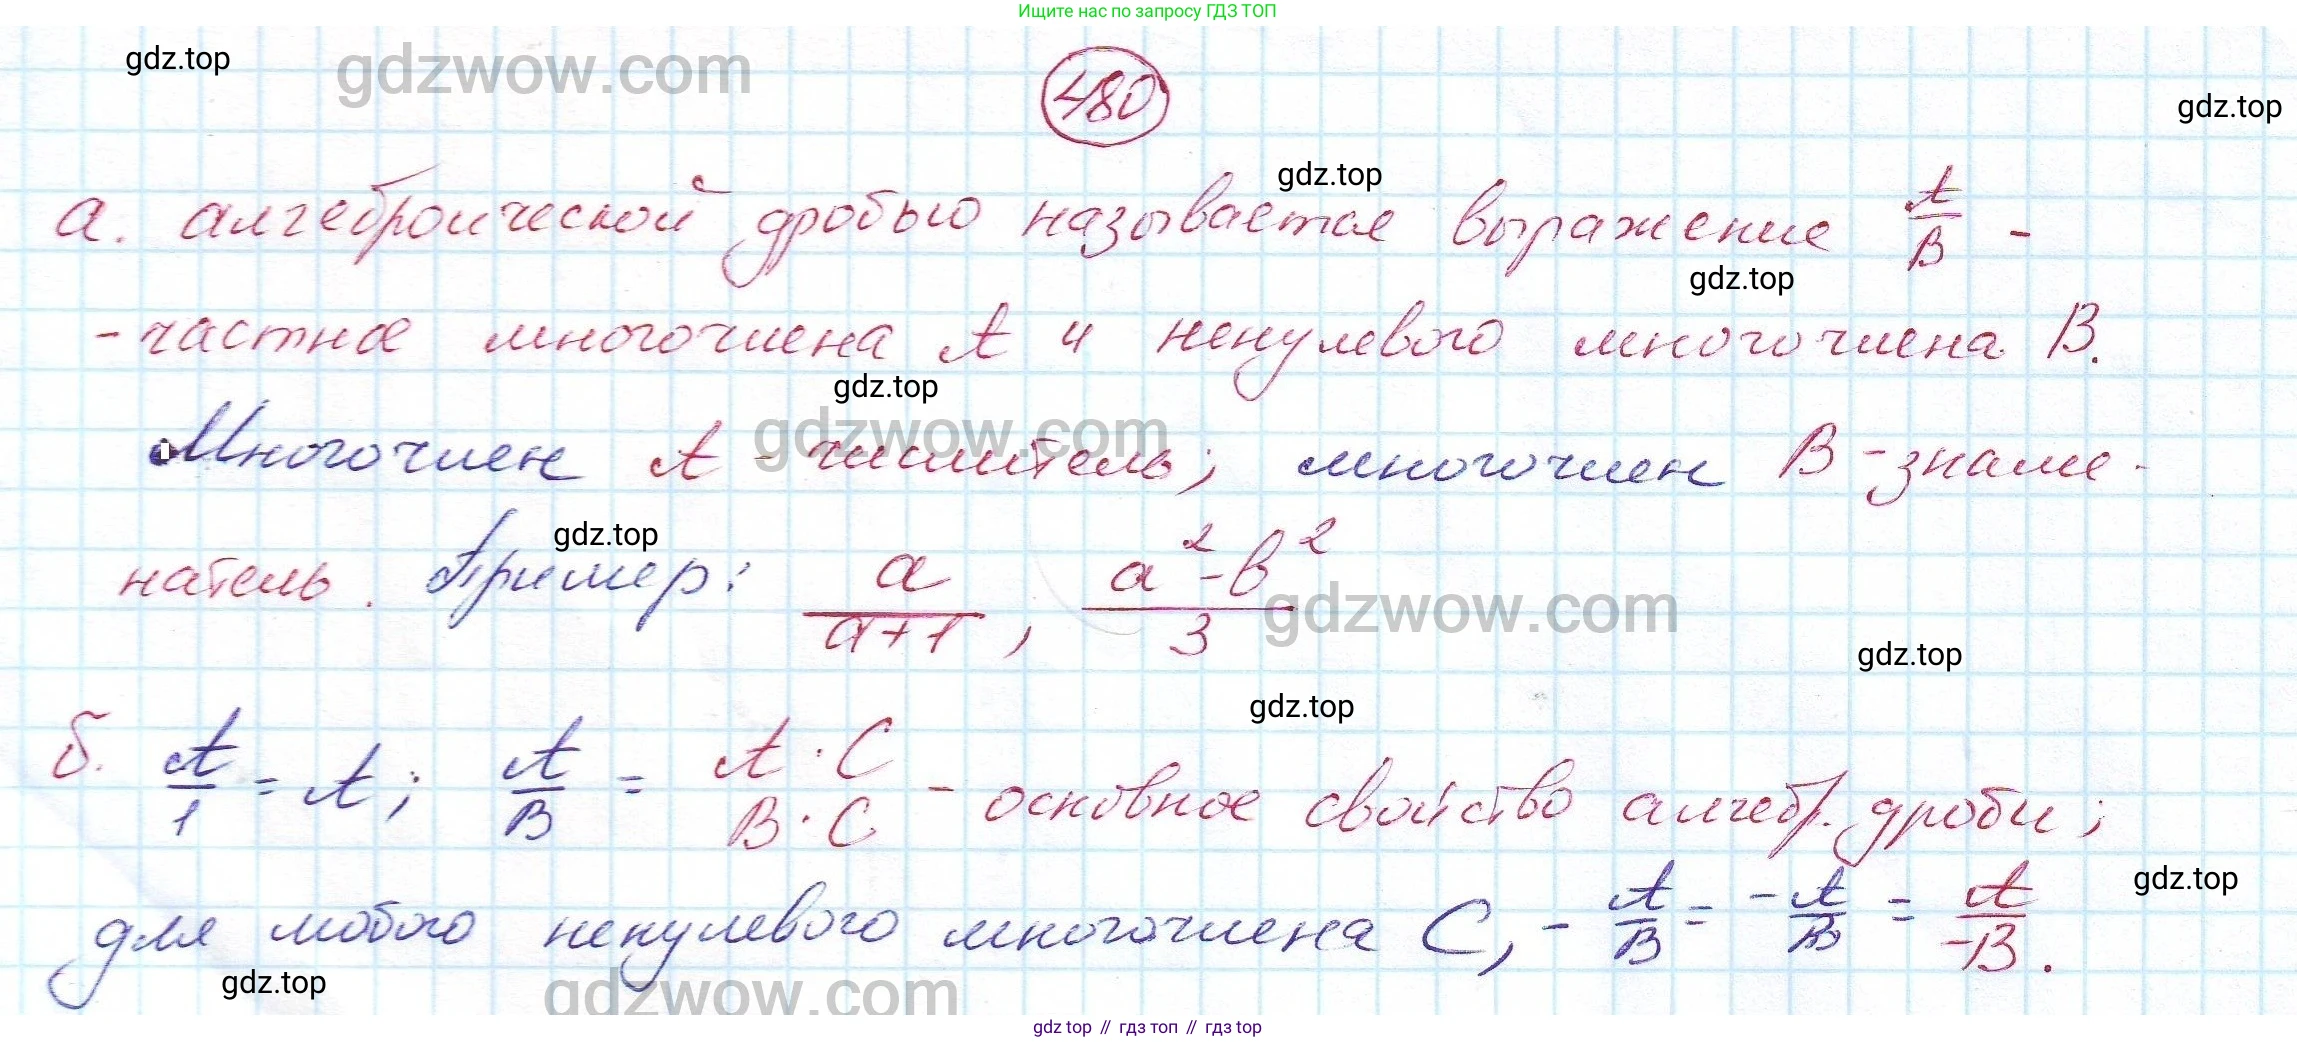 Ищите нас по запросу ГДЗ ТОП
gdz.top gdzwow.com
480
gdz.top
gdz.top
а. алгебраической дробью называется выражение A/B -
gdz.top
- частное многочлена A и ненулевого многочлена B.
gdz.top
gdzwow.com
Многочлен A - числитель; многочлен B - знаме-
gdz.top
натель. Пример: a/(a+1), (a²-b²)/3
gdzwow.com
gdz.top
gdz.top
б. A/1 = A; A/B = (A·C)/(B·C) - основное свойство алгебр. дроби;
gdz.top
для любого ненулевого многочлена C, - A/B = -A/B = A/-B.
gdz.top
gdzwow.com
gdz top // гдз топ // гдз top